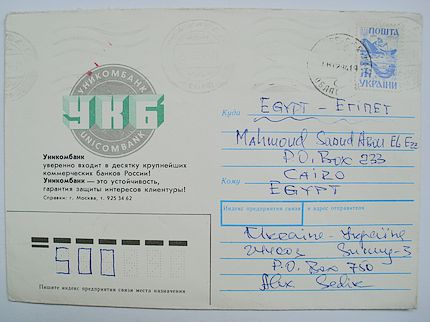 УНИКОМБАНК
УКБ
UNICOMBANK
Уникомбанк
уверенно входит в десятку крупнейших
коммерческих банков России!
Уникомбанк — это устойчивость,
гарантия защиты интересов клиентуры!
Справки: г. Москва, т. 925 34 62
ПОШТА
УКРАЇНИ
Куда EGYPT - ЕГІПЕТ
Mahmoud
P.O. Box 233
CAIRO
Кому EGYPT
Индекс предприятия связи и адрес отправителя
Ukraine - Україна
Sumy-3
P.O. Box 750
Alix
500
Пишите индекс предприятия связи места назначения